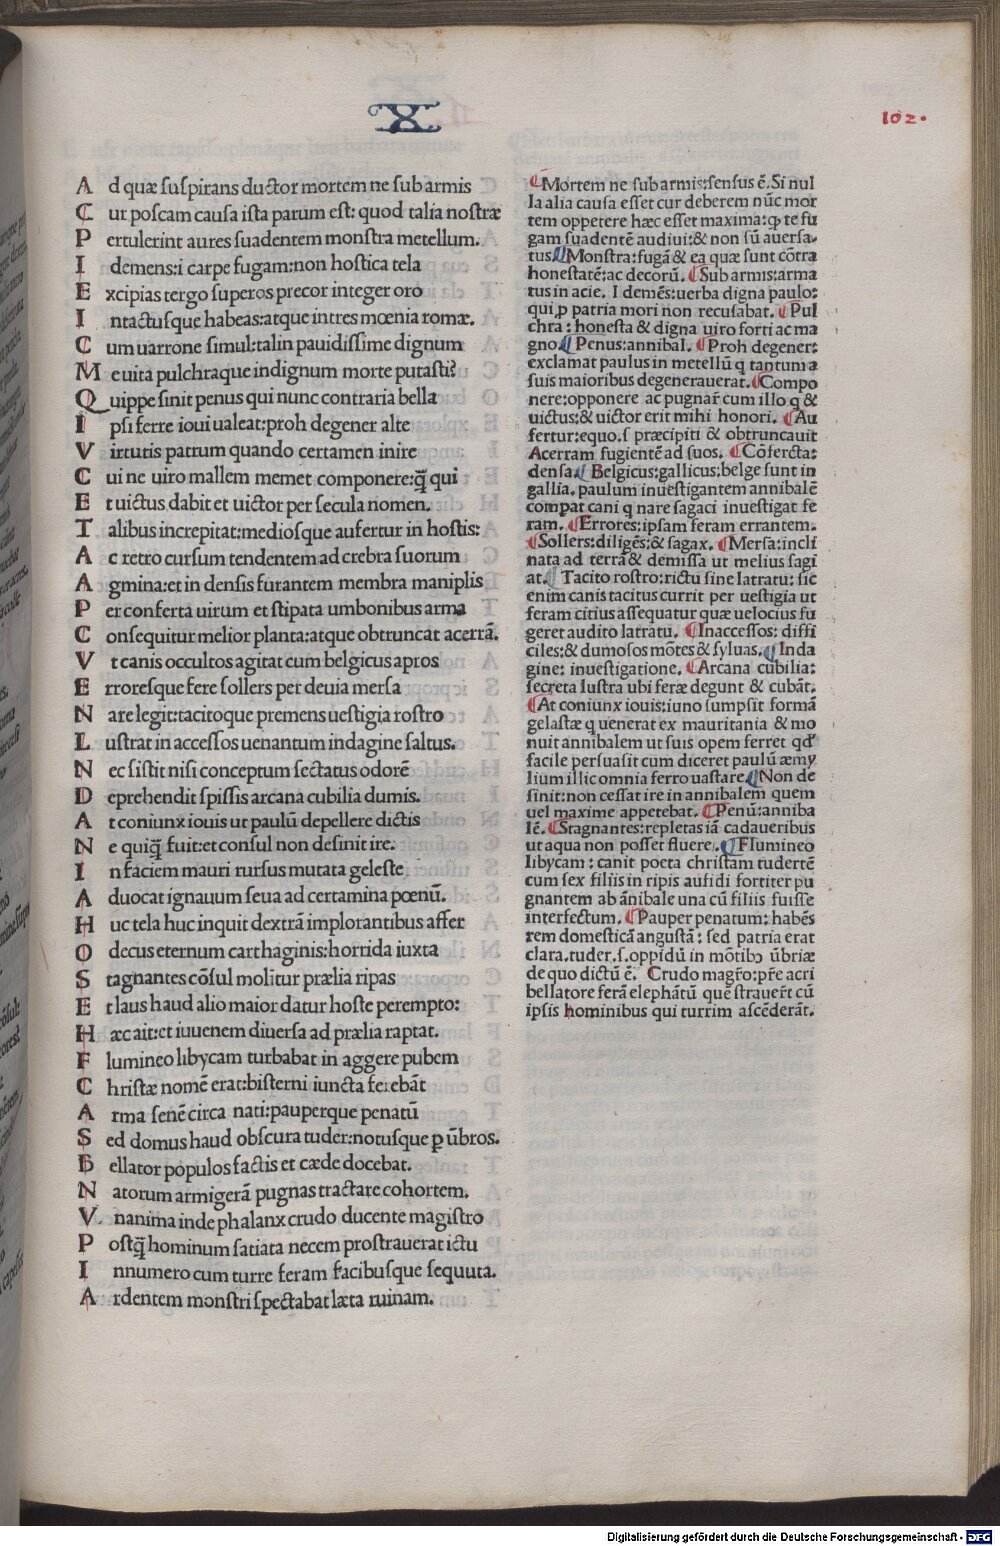 X
102.
A d quæ ſuſpirans ductor mortem ne ſub armis
C ur poſcam cauſa iſta parum eſt: quod talia noſtræ
P ertulerint aures ſuadentem monſtra metellum.
I demens:i carpe fugam:non hoſtica tela
E xcipias tergo ſuperos precor integer oro
I ntactuſque habeas:atque intres mœnia romæ.
C um uarrone ſimul:talin pauidiſſime dignum
M e uita pulchraque indignum morte putaſti?
Q uippe ſinit penus qui nunc contraria bella
I pſi ferre ioui ualeat:proh degener alte
V irtutis patrum quando certamen inire
C ui ne uiro mallem memet componere:q̃ qui
E t uictus dabit et uictor per ſecula nomen.
T alibus increpitat:medioſque aufertur in hoſtis:
A c retro curſum tendentem ad crebra ſuorum
A gmina:et in denſis furantem membra maniplis
P er conferta uirum et ſtipata umbonibus arma
C onſequitur melior planta:atque obtruncat acerrã.
V t canis occultos agitat cum belgicus apros
E rroreſque fere ſollers per deuia merſa
N are legit:tacitoque premens ueſtigia roſtro
L uſtrat in acceſſos uenantum indagine ſaltus.
N ec ſiſtit niſi conceptum ſectatus odorẽ
D eprehendit ſpiſſis arcana cubilia dumis.
A t coniunx iouis ut paulũ depellere dictis
N e quiq̃ fuit:et conſul non deſinit ire:
I n faciem mauri rurſus mutata geleſte
A duocat ignauum ſeua ad certamina pœnũ.
H uc tela huc inquit dextrã implorantibus affer
O decus eternum carthaginis:horrida iuxta
S tagnantes cõſul molitur prælia ripas
E t laus haud alio maior datur hoſte perempto:
H æc ait:et iuuenem diuerſa ad prælia raptat.
F lumineo libycam turbabat in aggere pubem
C hriſtæ nomẽ erat:biſterni iuncta ferebãt
A rma ſenẽ circa nati:pauperque penatũ
S ed domus haud obſcura tuder:notuſque ꝑ ũbros.
B ellator populos factis et cæde docebat.
N atorum armigerã pugnas tractare cohortem.
V nanima inde phalanx crudo ducente magiſtro
P oſtq̃ hominum ſatiata necem proſtrauerat ictu
I nnumero cum turre feram facibuſque ſequuta.
A rdentem monſtri ſpectabat læta ruinam.
Mortem ne ſub armis:ſenſus ẽ. Si nul
la alia cauſa eſſet cur deberem nũc mor
tem oppetere hæc eſſet maxima:ꝙ te fu
gam ſuadentẽ audiui:& non ſũ auerſa-
tus. Monſtra:fugã & ea quæ ſunt cõtra
honeſtatẽ:ac decorũ. Sub armis:arma
tus in acie. I demẽs:uerba digna paulo:
qui ꝓ patria mori non recuſabat. Pul
chra: honeſta & digna uiro forti ac ma
gno. Penus:annibal. Proh degener:
exclamat paulus in metellũ q tantum a
ſuis maioribus degenerauerat. Compo
nere:opponere ac pugnar̃ cum illo q &
uictus:& uictor erit mihi honori. Au
fertur:equo.ſ præcipiti & obtruncauit
Acerram fugientẽ ad ſuos. Cõfercta:
denſa. Belgicus:gallicus:belge ſunt in
gallia. paulum inueſtigantem annibalẽ
compat cani q nare ſagaci inueſtigat fe
ram. Errores:ipſam feram errantem.
Sollers:diligẽs:& ſagax. Merſa:incli
nata ad terrã & demiſſa ut melius ſagi
at. Tacito roſtro:rictu ſine latratu: ſic
enim canis tacitus currit per ueſtigia ut
feram citius aſſequatur quæ uelocius fu
geret audito latratu. Inacceſſos: diffi
ciles:& dumoſos mõtes & ſyluas. Inda
gine: inueſtigatione. Arcana cubilia:
ſecreta luſtra ubi feræ degunt & cubãt.
At coniunx iouis:iuno ſumpſit formã
gelaſtæ q uenerat ex mauritania & mo
nuit annibalem ut ſuis opem ferret qd'
facile perſuaſit cum diceret paulũ æmy
lium illic omnia ferro uaſtare. Non de
ſinit:non ceſſat ire in annibalem quem
uel maxime appetebat. Penũ:anniba
lẽ. Stagnantes:repletas iã cadaueribus
ut aqua non poſſet fluere. Flumineo
libycam: canit poeta chriſtam tudertẽ
cum ſex filiis in ripis aufidi fortiter pu
gnantem ab ãnibale una cũ filiis fuiſſe
interfectum. Pauper penatum: habẽs
rem domeſticã anguſtã: ſed patria erat
clara.tuder.ſ.oppidũ in mõtibꝰ ũbriæ
de quo dictũ ẽ. Crudo magr̃o:pr̃e acri
bellatore ferã elephãtũ quẽ ſtrauer̃t cũ
ipſis hominibus qui turrim aſcẽderãt.
Digitalisierung gefördert durch die Deutsche Forschungsgemeinschaft - DFG